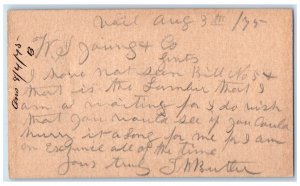 Vail Aug 3th /95
W. J. Young & Co
Gents
I have not seen Bill No 54
that is the Lumber that I
am a waiting for I do wish
that you would see if you Could
hurry it a long for me as I am
on Expence all of the time
yours truly
Ans 8/4/95